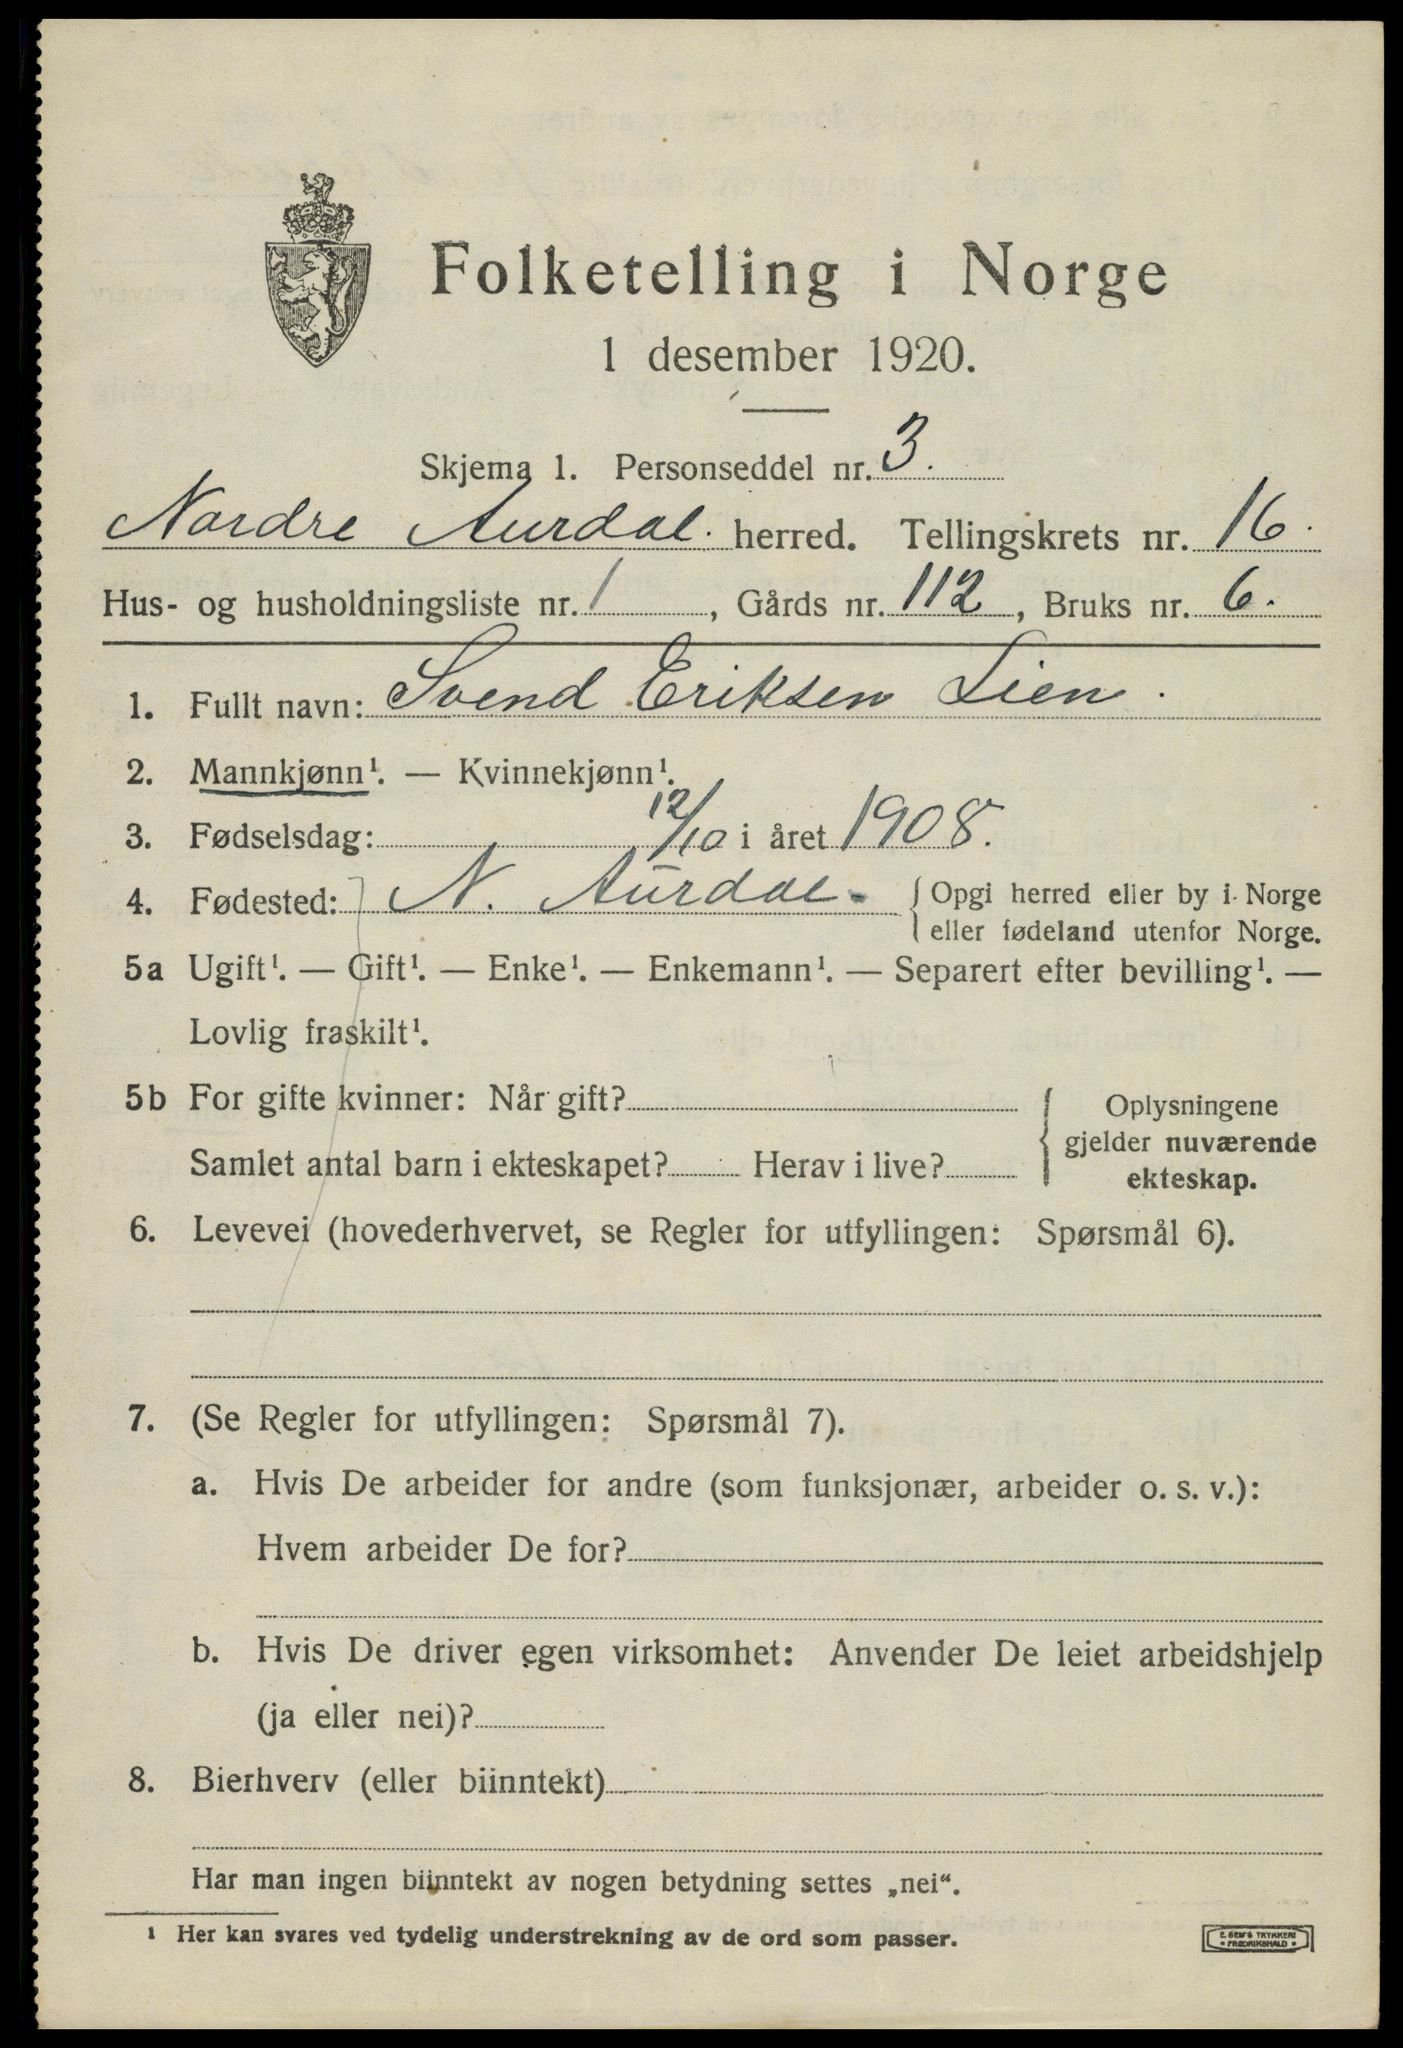 Folketelling i Norge
1 desember 1920.
Skjema 1. Personseddel nr. 3.
Nordre Aurdal. herred. Tellingskrets nr. 16.
Hus- og husholdningsliste nr. 1, Gårds nr. 112, Bruks nr. 6.
1. Fullt navn: Svend Eriksen Lien.
2. Mannkjønn¹. — Kvinnekjønn¹.
3. Fødselsdag: 12/10 i året 1908.
4. Fødested: N. Aurdal. { Opgi herred eller by i Norge
eller fødeland utenfor Norge.
5a Ugift¹. — Gift¹. — Enke¹. — Enkemann¹. — Separert efter bevilling¹. —
Lovlig fraskilt¹.
5b For gifte kvinner: Når gift?
Samlet antal barn i ekteskapet? Herav i live?
{ Oplysningene
gjelder nuværende
ekteskap.
6. Levevei (hovederhvervet, se Regler for utfyllingen: Spørsmål 6).
7. (Se Regler for utfyllingen: Spørsmål 7).
a. Hvis De arbeider for andre (som funksjonær, arbeider o. s. v.):
Hvem arbeider De for?
b. Hvis De driver egen virksomhet: Anvender De leiet arbeidshjelp
(ja eller nei)?
8. Bierhverv (eller biinntekt)
Har man ingen biinntekt av nogen betydning settes „nei“.
¹ Her kan svares ved tydelig understrekning av de ord som passer.
E. SEM'S TRYKKERI
• FREDRIKSHALD •